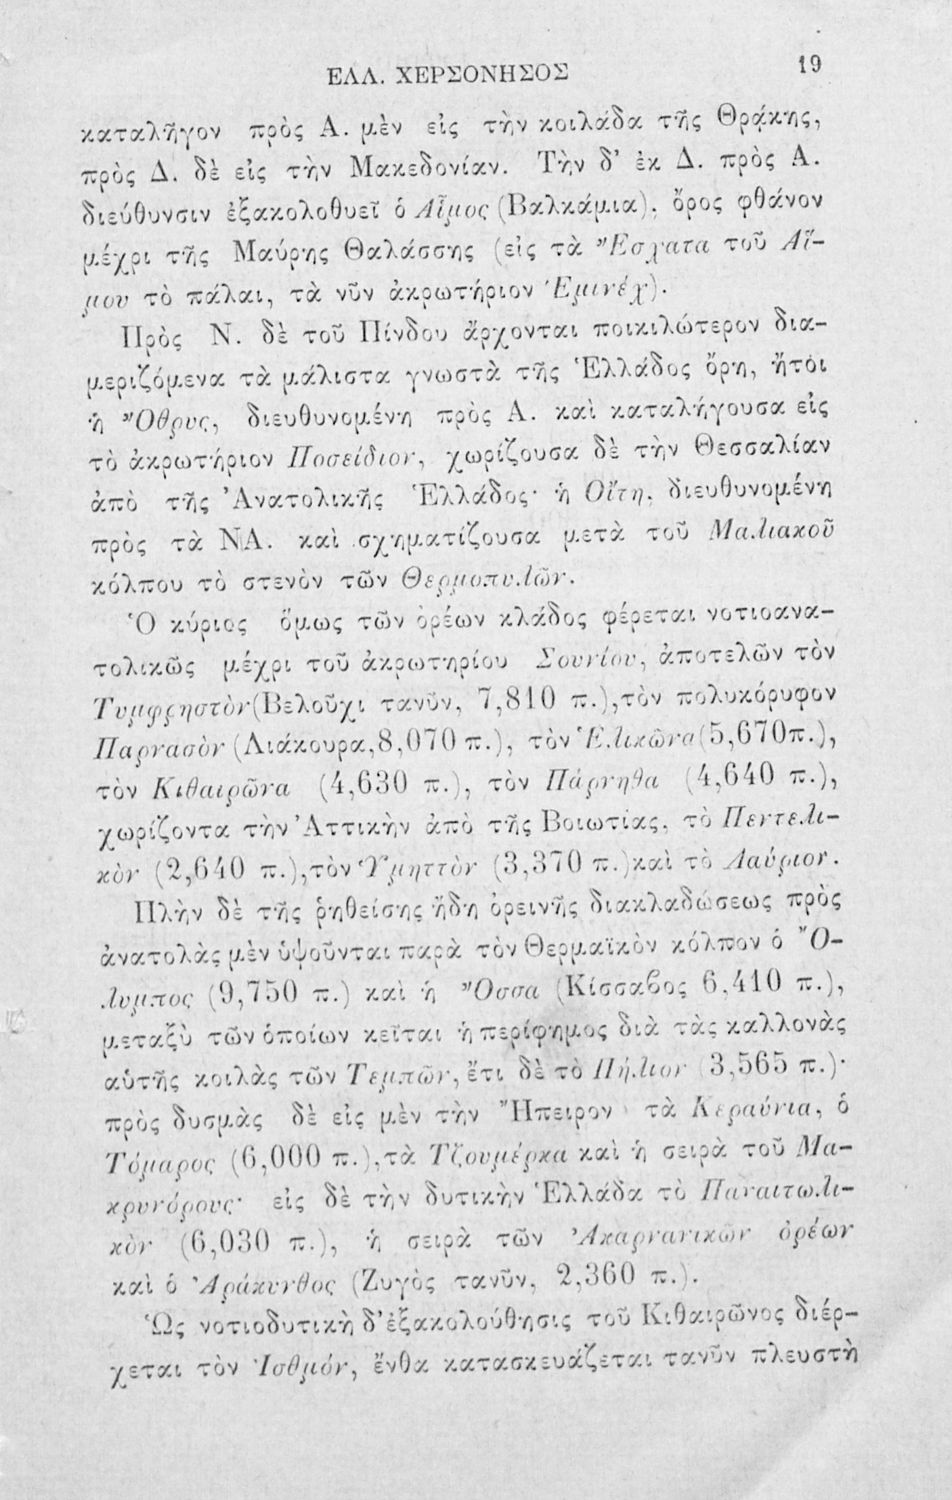 ΕΛΛ. ΧΕΡΣΟΝΗΣΟΣ 19
καταλῆγον πρὸς Α. μὲν εἰς τὴν κοιλάδα τῆς Θρᾴκης,
πρὸς Δ. δὲ εἰς τὴν Μακεδονίαν. Τὴν δ' ἐκ Δ. πρὸς Α.
διεύθυνσιν ἐξακολοθυεῖ ὁ Αἷμος (Βαλκάμια), ὄρος φθάνον
μέχρι τῆς Μαύρης Θαλάσσης (εἰς τὰ Ἔσχατα τοῦ Αἵ-
μου τὸ πάλαι, τὰ νῦν ἀκρωτήριον Ἐμινέχ).
Πρὸς Ν. δὲ τοῦ Πίνδου ἄρχονται ποικιλώτερον δια-
μεριζόμενα τὰ μάλιστα γνωστὰ τῆς Ἑλλάδος ὄρη, ἤτοι
ἡ Ὄθρυς, διευθυνομένη πρὸς Α. καὶ καταλήγουσα εἰς
τὸ ἀκρωτήριον Ποσείδιον, χωρίζουσα δὲ τὴν Θεσσαλίαν
ἀπὸ τῆς Ἀνατολικῆς Ἑλλάδος· ἡ Οἴτη, διευθυνομένη
πρὸς τὰ ΝΑ. καὶ σχηματίζουσα μετὰ τοῦ Μαλιακοῦ
κόλπου τὸ στενὸν τῶν Θερμοπυλῶν.
Ὁ κύριος ὅμως τῶν ὀρέων κλάδος φέρεται νοτιοανα-
τολικῶς μέχρι τοῦ ἀκρωτηρίου Σουνίου, ἀποτελῶν τὸν
Τυμφρηστὸν (Βελοῦχι τανῦν, 7,810 π.), τὸν πολυκόρυφον
Παρνασὸν (Λιάκουρα, 8,070 π.), τὸν Ἑλικῶνα (5,670 π.),
τὸν Κιθαιρῶνα (4,630 π.), τὸν Πάρνηθα (4,640 π.),
χωρίζοντα τὴν Ἀττικὴν ἀπὸ τῆς Βοιωτίας, τὸ Πεντελι-
κὸν (2,640 π.), τὸν Ὑμηττὸν (3,370 π.) καὶ τὸ Λαύριον.
Πλὴν δὲ τῆς ῥηθείσης ἤδη ὀρεινῆς διακλαδώσεως πρὸς
ἀνατολὰς μὲν ὑψοῦνται παρὰ τὸν Θερμαϊκὸν κόλπον ὁ Ὄ-
λυμπος (9,750 π.) καὶ ἡ Ὄσσα (Κίσσαβος 6,410 π.),
μεταξὺ τῶν ὁποίων κεῖται ἡ περίφημος διὰ τὰς καλλονὰς
αὑτῆς κοιλὰς τῶν Τεμπῶν, ἔτι δὲ τὸ Πήλιον (3,565 π.)·
πρὸς δυσμὰς δὲ εἰς μὲν τὴν Ἤπειρον τὰ Κεραύνια, ὁ
Τόμαρος (6,000 π.), τὰ Τζουμέρκα καὶ ἡ σειρὰ τοῦ Μα-
κρυνόρους· εἰς δὲ τὴν δυτικὴν Ἑλλάδα τὸ Παναιτωλι-
κὸν (6,030 π.), ἡ σειρὰ τῶν Ἀκαρνανικῶν ὀρέων
καὶ ὁ Ἀράκυνθος (Ζυγὸς τανῦν, 2,360 π.).
Ὡς νοτιοδυτικὴ δ' ἐξακολούθησις τοῦ Κιθαιρῶνος διέρ-
χεται τὸν Ἰσθμόν, ἔνθα κατασκευάζεται τανῦν πλευστὴ